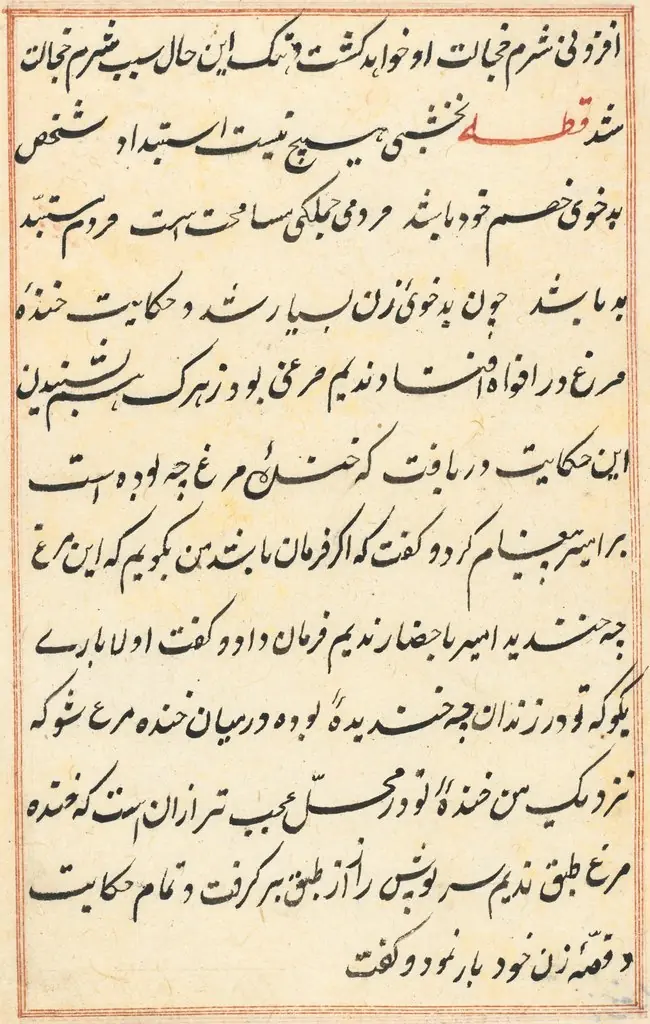 افزونی شرم خجالت او خواهد کشت و تنک این حال سبب شرم خجالت
شد قطعه نخشبی هیچ نیست استبداد شخص
بدخوی خصم خود باشد مردمی جملکی مسامحت است مردم مستبد
بد باشد چون بدخوئ زن بسیار شد و حکایت خندۀ
مرغ در افواه افتاد ندیم مرغی بود زیرک هم بشنیدن
این حکایت دریافت که خندۀ مرغ چه بوده است
بر امیر پیغام کرد و کفت که اکر فرمان باشد من بکویم که این مرغ
چه خندید امیر باحضار ندیم فرمان داد و کفت اولا بارے
بکو که تو در زندان چه خندیدۀ بوده درمیان خنده مرغ شو که
نزدیک من خندۀ تو در محلّ عجیب تر ازان است که خنده
مرغ طبق ندیم سرپوش راز از طبق برکرفت و تمام حکایت
و قصّۀ زن خود باز نمود و کفت